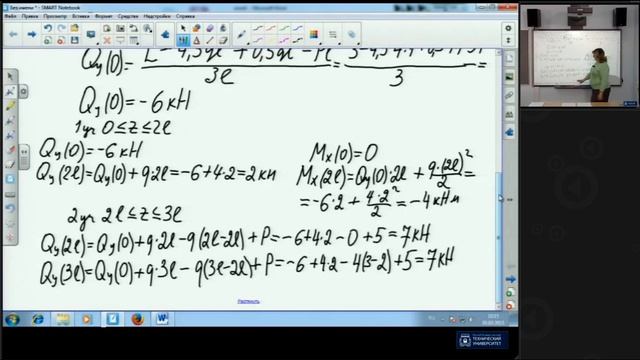 Без имени * - SMART Notebook
Файл Правка Вид Вставка Формат Средства Настройки Справка
Qy(0)= L - 4,5ql² + 0,5ql² - Pl / 3l = / 3 =
Qy(0)=-6кН
1уч 0≤z≤2l
Qy(0)=-6кН Mx(0)=0
Qy(2l)=Qy(0)+q·2l=-6+4·2=2кН Mx(2l)=Qy(0)·2l+q·(2l)²/2=
=-6·2+4·2²/2=-4кНм
2уч 2l≤z≤3l
Qy(2l)=Qy(0)+q·2l-q(2l-2l)+P=-6+4·2-0+5=7кН
Qy(3l)=Qy(0)+q·3l-q(3l-2l)+P=-6+4·2-4(3-2)+5=7кН
Растянуть
ТЕХНИЧЕСКИЙ
УНИВЕРСИТЕТ